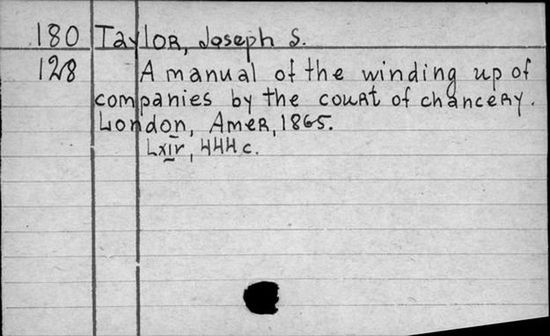 180 Taylor, Joseph S.
128 A manual of the winding up of
companies by the court of chancery.
London, Amer, 1865.
Lxiv, 444 c.